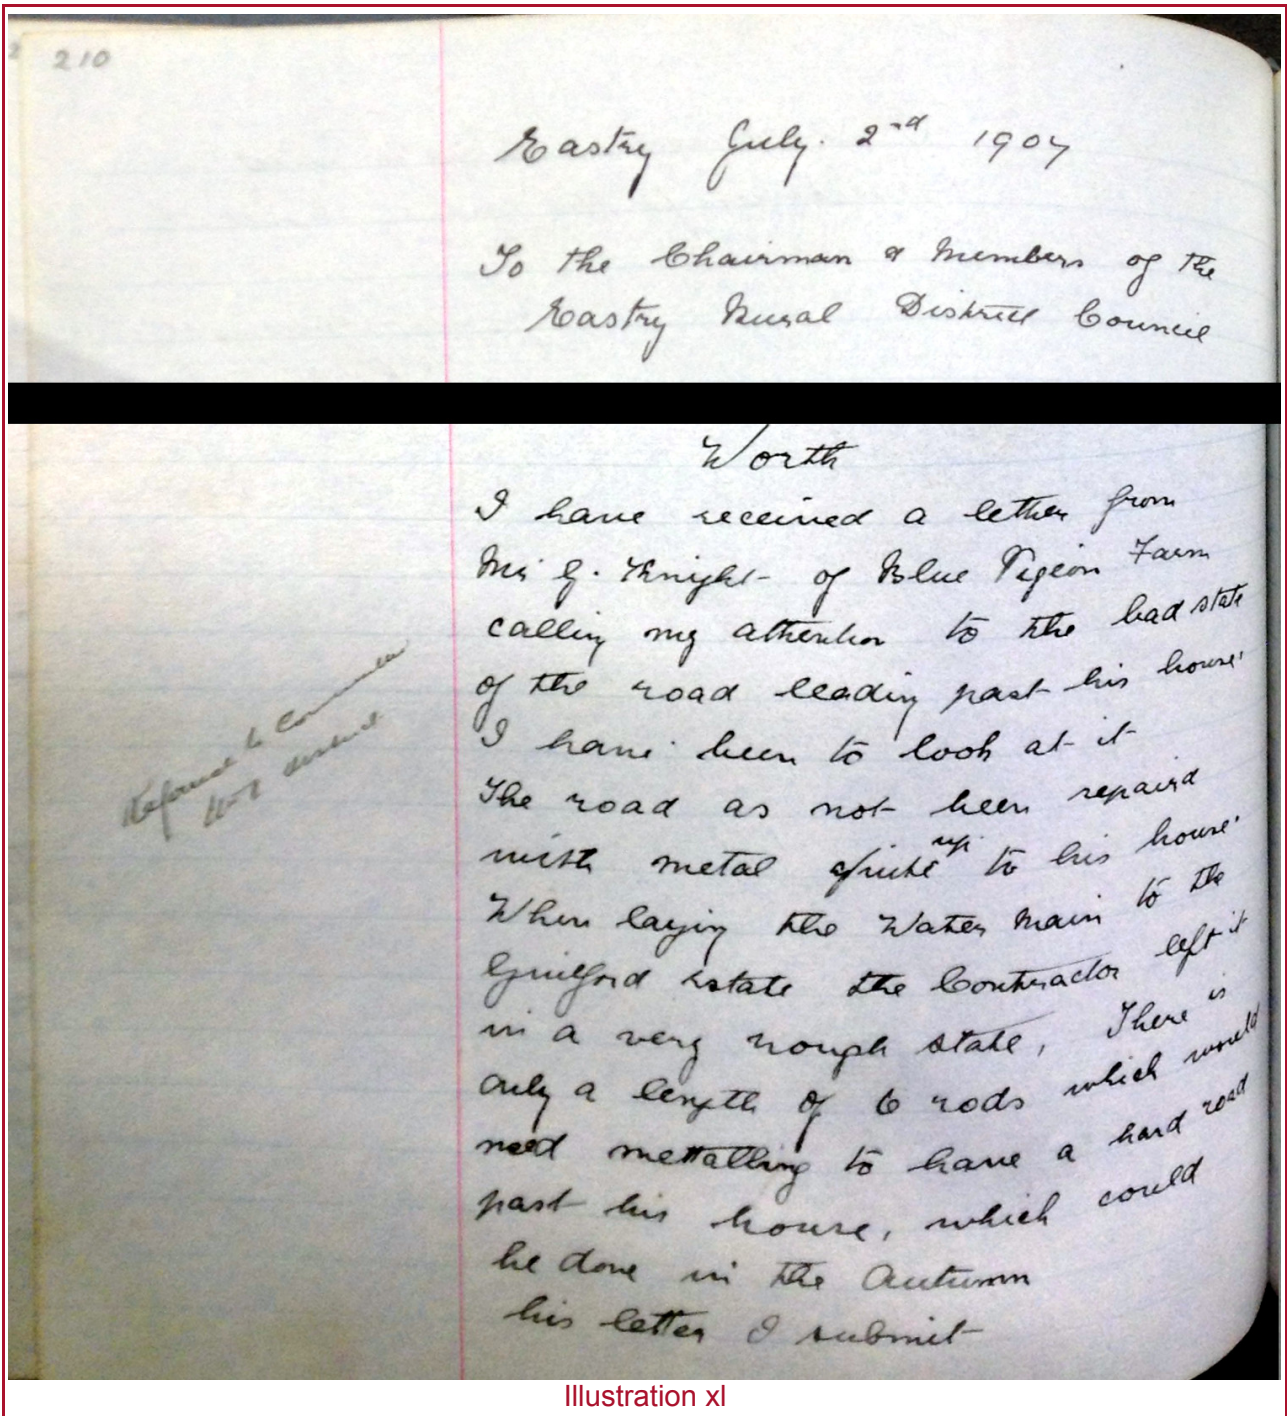 210
Eastry July. 2nd 1907
To the Chairman & Members of the
Eastry Rural District Council
Worth
I have received a letter from
Mr G. Knight of Blue Pigeon Farm
calling my attention to the bad state
of the road leading past his house.
I have been to look at it
The road as not been repaird
with metal quite up to his house.
When laying the Water Main to the
Guilford Estate the Contractor left it
in a very rough state, There is
only a length of 6 rods which would
need mettalling to have a hard road
past his house, which could
be done in the Autumn
his letter I submit
Referred to Committee
Illustration xl